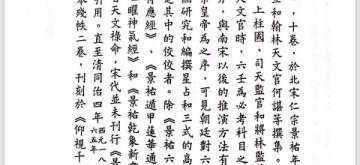 ，十卷，於北宋仁宗景祐年
並和翰林天文官何諶等撰集。
上柱國、司天監官和將林監
天文官時，六壬為必考科目之
，與南宋以後的推演方法有
宗皇帝為之序，可見朝廷對六
個研究和編撰星占和三式的高
是其中的佼佼者。除《景祐六
將應經》、《景祐遁甲蓮華通
七曜神氣經》和《景祐乾象新書
者天文祿命，宋代並未刊行《景
引用。直至清同治四年西元一八六五年
本殘帙二卷，刊刻於《仰視千